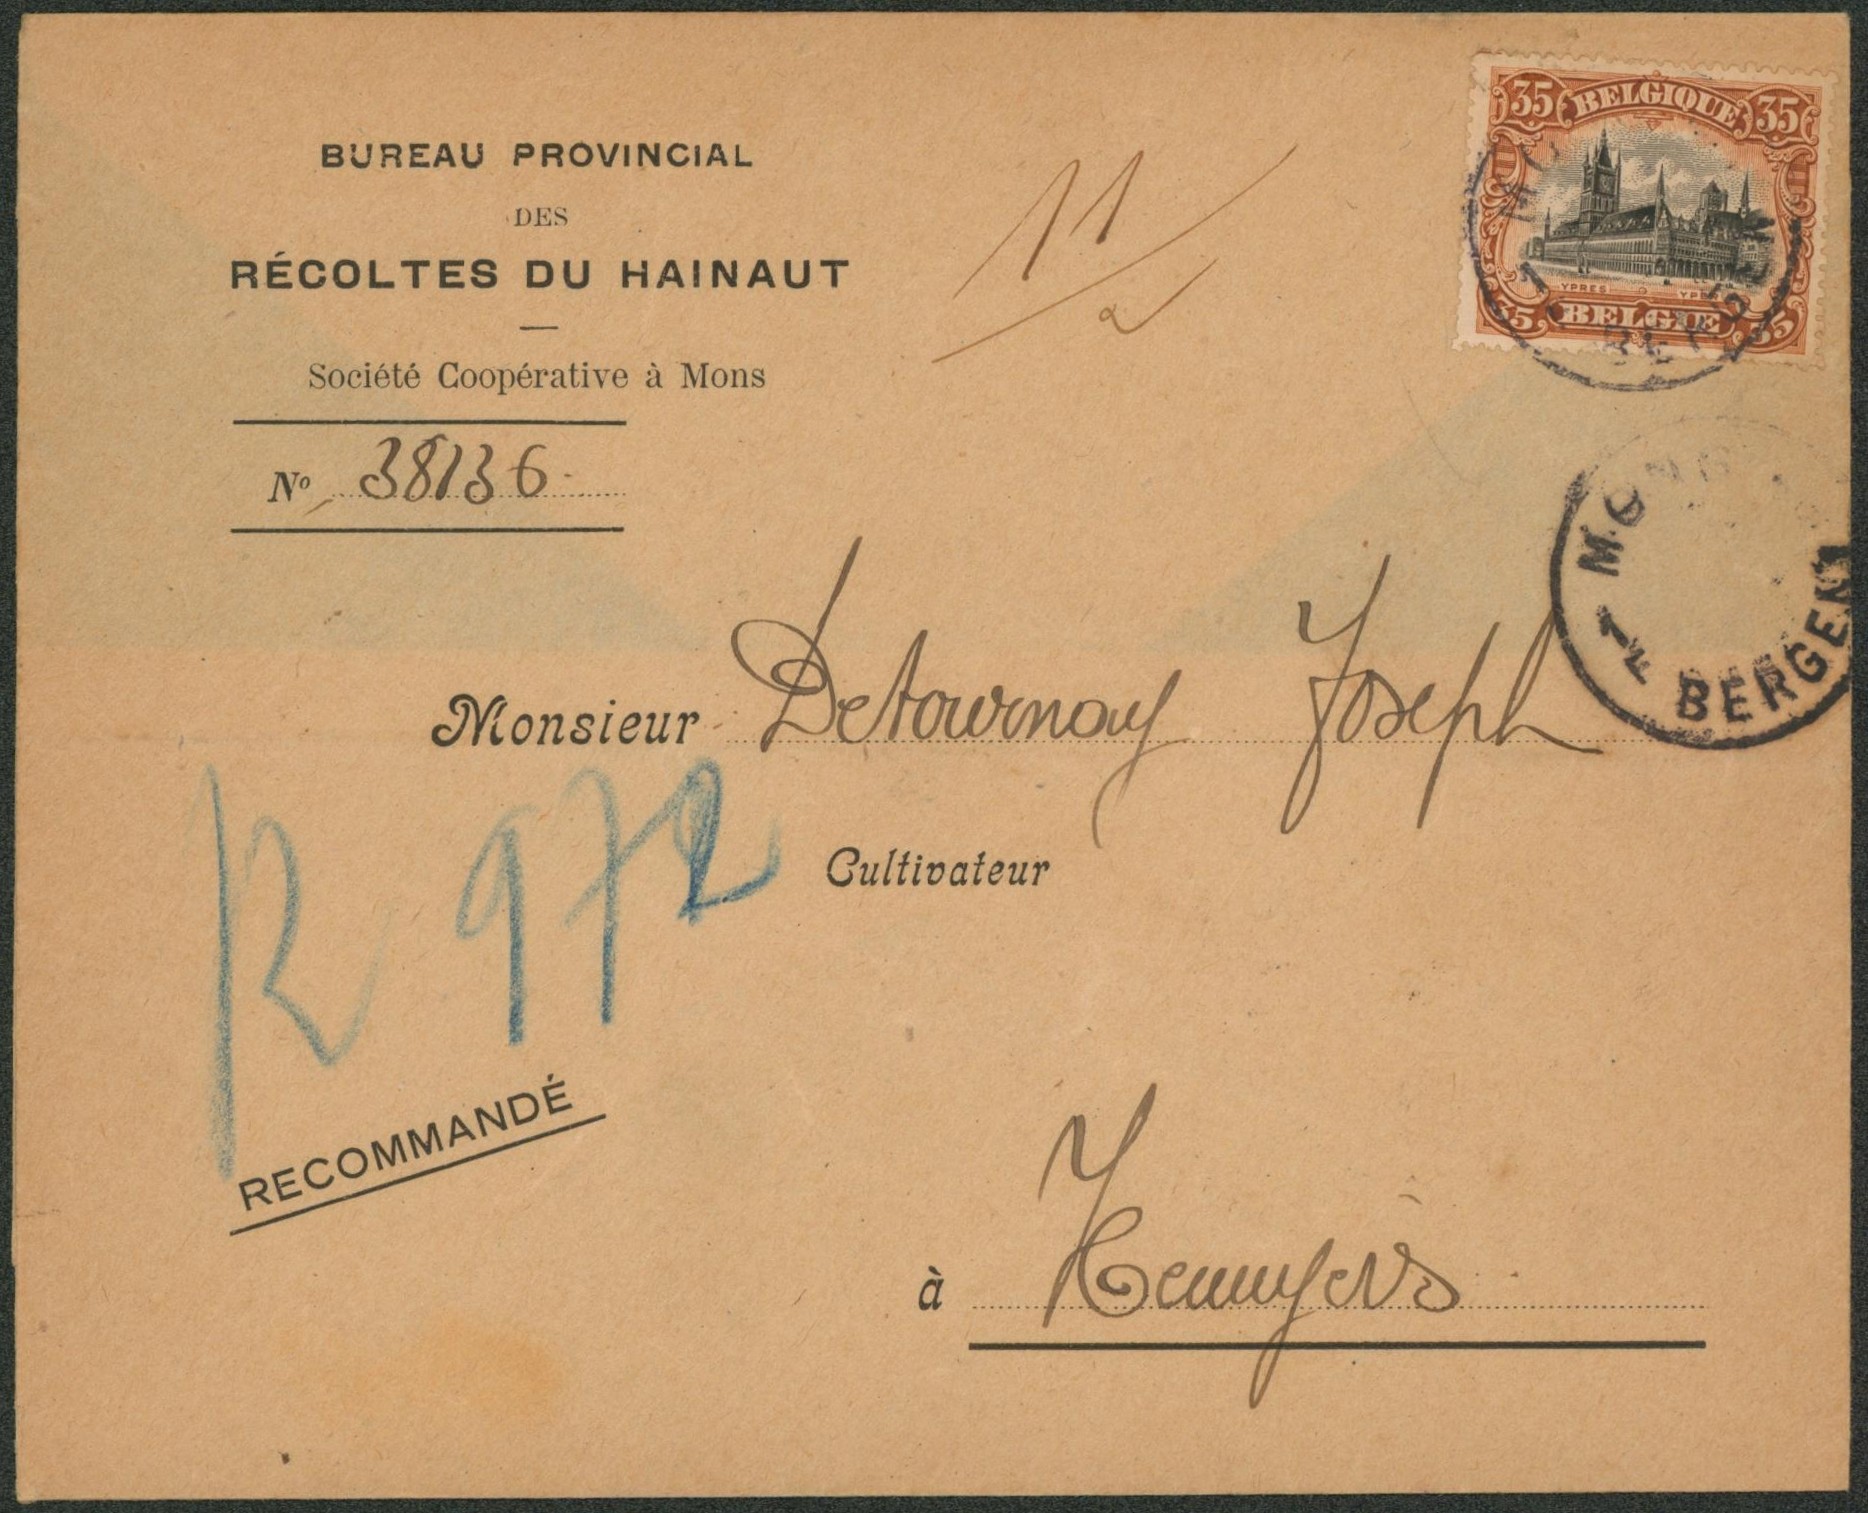 BUREAU PROVINCIAL
DES
RÉCOLTES DU HAINAUT
Société Coopérative à Mons
Nº 38136
11/2
35 BELGIQUE 35
YPRES YPER
35 BELGIE 35
MONS
BERGEN
Monsieur Detournay Joseph
Cultivateur
R 972
RECOMMANDÉ
à